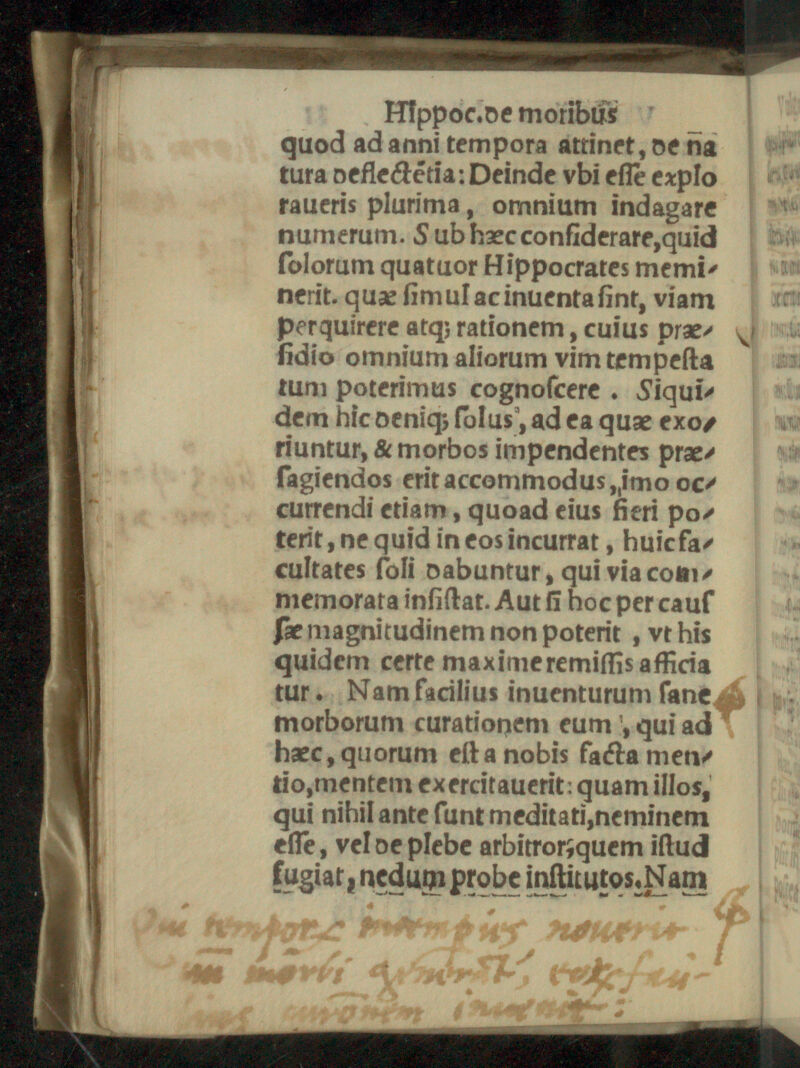 HIppoc.de moribus
quod ad anni tempora attinet, de nā
tura deflectētia: Deinde vbi eſſe explo
raueris plurima, omnium indagare
numerum. Sub hæc conſiderare,quid
ſolorum quatuor Hippocrates memi⸗
nerit. quæ ſimul ac inuenta ſint, viam
perquirere atq; rationem, cuius præ⸗
ſidio omnium aliorum vim tempeſta
tum poterimus cognoſcere . Siqui⸗
dem hic deniq; ſolus, ad ea quæ exo⸗
riuntur, & morbos impendentes præ⸗
ſagiendos erit accommodus,,imo oc⸗
currendi etiam, quoad eius fieri po⸗
terit, ne quid in eos incurrat, huic fa⸗
cultates ſoli dabuntur, qui via com⸗
memorata inſiſtat. Aut ſi hoc per cauſ
ſæ magnitudinem non poterit , vt his
quidem certe maxime remiſſis afficia
tur. Nam facilius inuenturum ſane
morborum curationem eum , qui ad
hæc, quorum eſt a nobis facta men⸗
tio,mentem exercitauerit: quam illos,
qui nihil ante ſunt meditati,neminem
eſſe, vel de plebe arbitror;quem iſtud
fugiat, nedum probe inſtitutos. Nam
nouerit
morbi